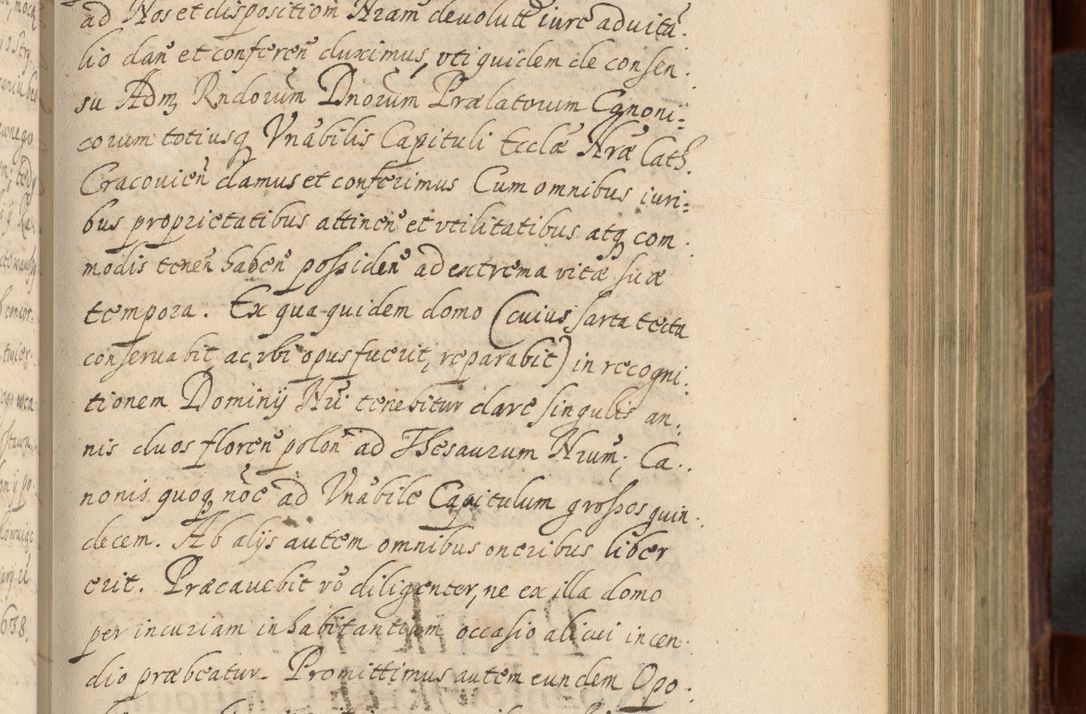 ad Nos et disposition̄ Nram̄ devolutā iure advita
lio dan̄ et conferen̄ duximus, vti quidem de consen
su Adm̄ Rndorum̄ Dnorum̄ Prælatorum Canoni:
corum totiusq̨ Vnābilis Capituli Eccl̄æ Nr̄æ Cath.
Cracovien̄ damus et conferimus Cum omnibus iuri:
bus proprietatibus attinen̄ et vtilitatibus atq̨ com
modis tenen̄ haben̄ possiden̄ ad extrema vitæ suæ
tempora. Ex qua quidem domo (cuius sarta tecta
conservabit ac vbi opus fuerit, reparabit) in recogni:
tionem Dominij Nri tenebitur dare singulis an:
nis duos floren̄ polon̄ ad Thesaurum Nrum̄, Ca.
nonis quoq̨ nōe ad Vnābile Capitulum grossos quin
decem. Ab alijs autem omnibus oneribus liber
erit. Præcavebit vō diligenter, ne ex illa domo
per incuriam inhabitantium occasio alicui incen
dio præbeatur. Promittimus autem eundem Opo
638.